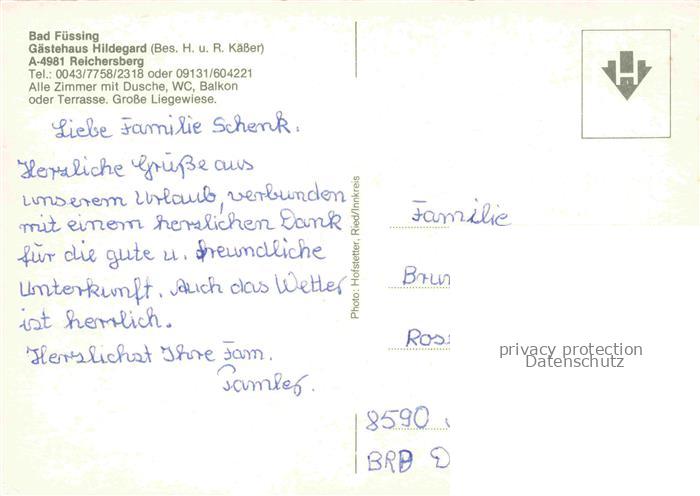 Bad Füssing
Gästehaus Hildegard (Bes. H. u. R. Käßer)
A-4981 Reichersberg
Tel.: 0043/7758/2318 oder 09131/604221
Alle Zimmer mit Dusche, WC, Balkon
oder Terrasse. Große Liegewiese.
Liebe Familie Schenk.
Herzliche Grüße aus
unserem Urlaub, verbunden
mit einem herzlichen Dank
für die gute u. freundliche
Unterkunft. Auch das Wetter
ist herrlich.
Herzlichst Ihre Fam.
Photo: Hofstetter, Ried/Innkreis
Familie
Brun
Ros
8590
BRD D
privacy protection
Datenschutz